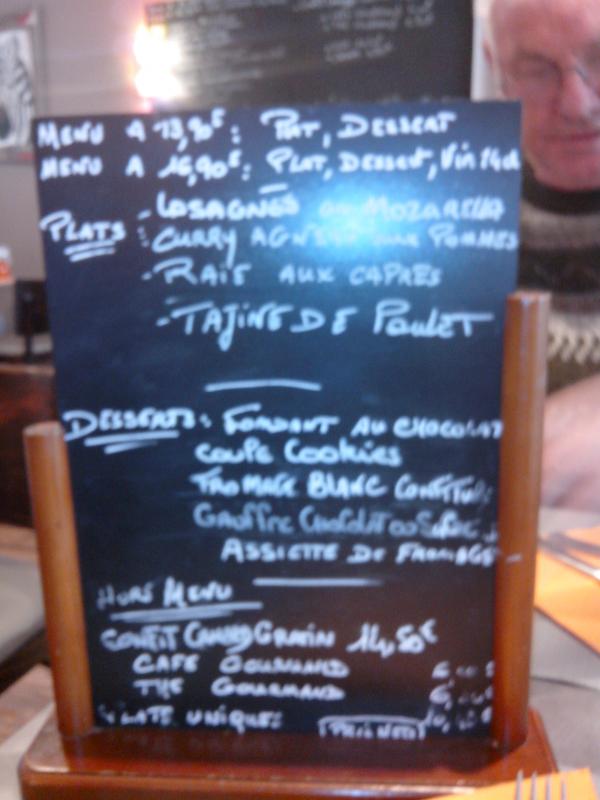 MENU A 13,90€: PLAT, DESSERT
MENU A 16,90€: PLAT, DESSERT, Vin 14cl
PLATS - LASAGNES MOZARELLA
: CURRY AGNEAU AUX POMMES
- RAIE AUX CAPRES
- TAJINE DE POULET
DESSERTS: FONDANT AU CHOCOLAT
COUPE COOKIES
FROMAGE BLANC CONFITURE
GAUFFRE CHOCOLAT OU SUCRE
ASSIETTE DE FROMAGE
HORS MENU
CONFIT CANARD GRATIN 14,50€
CAFE GOURMAND
THE GOURMAND
PLATS UNIQUE: